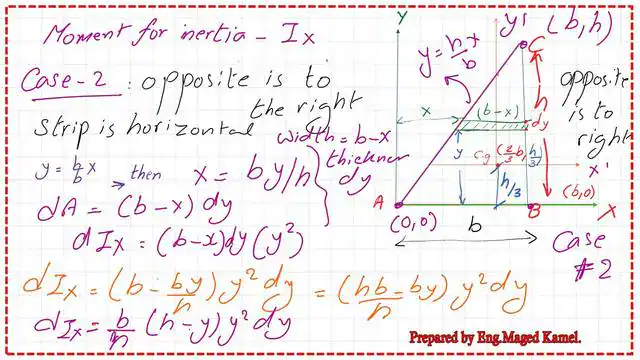 Moment for inertia - Ix
Case-2 : opposite is to
the right
strip is horizontal
width = b-x
thickness
dy
y = h/b x then x = by/h
dA = (b-x) dy
dIx = (b-x)dy(y²)
dIx = (b - by/h) y² dy = (hb-by)/h y² dy
dIx = b/h (h-y) y² dy
Y
y'
(b,h)
C
y = hx/b
h
opposite
is to
right
x
(b-x)
dy
y
cg (2/3 b, h/3)
x'
h/3
(b,0)
A
(0,0)
B
X
b
Case
#2
Prepared by Eng.Maged Kamel.